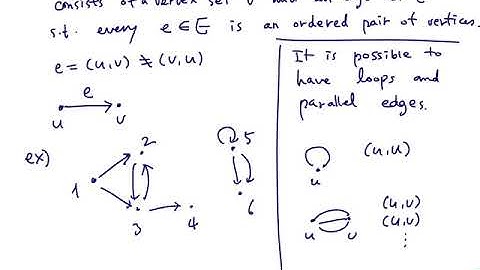 consists of a vertex set V and an edge set E
s.t. every e ∈ E is an ordered pair of vertices.
e = (u,v) ≠ (v,u)
e
u v
ex)
1 2 3 4 5 6
It is possible to
have loops and
parallel edges.
u (u,u)
u v (u,v)
(u,v)
⋮